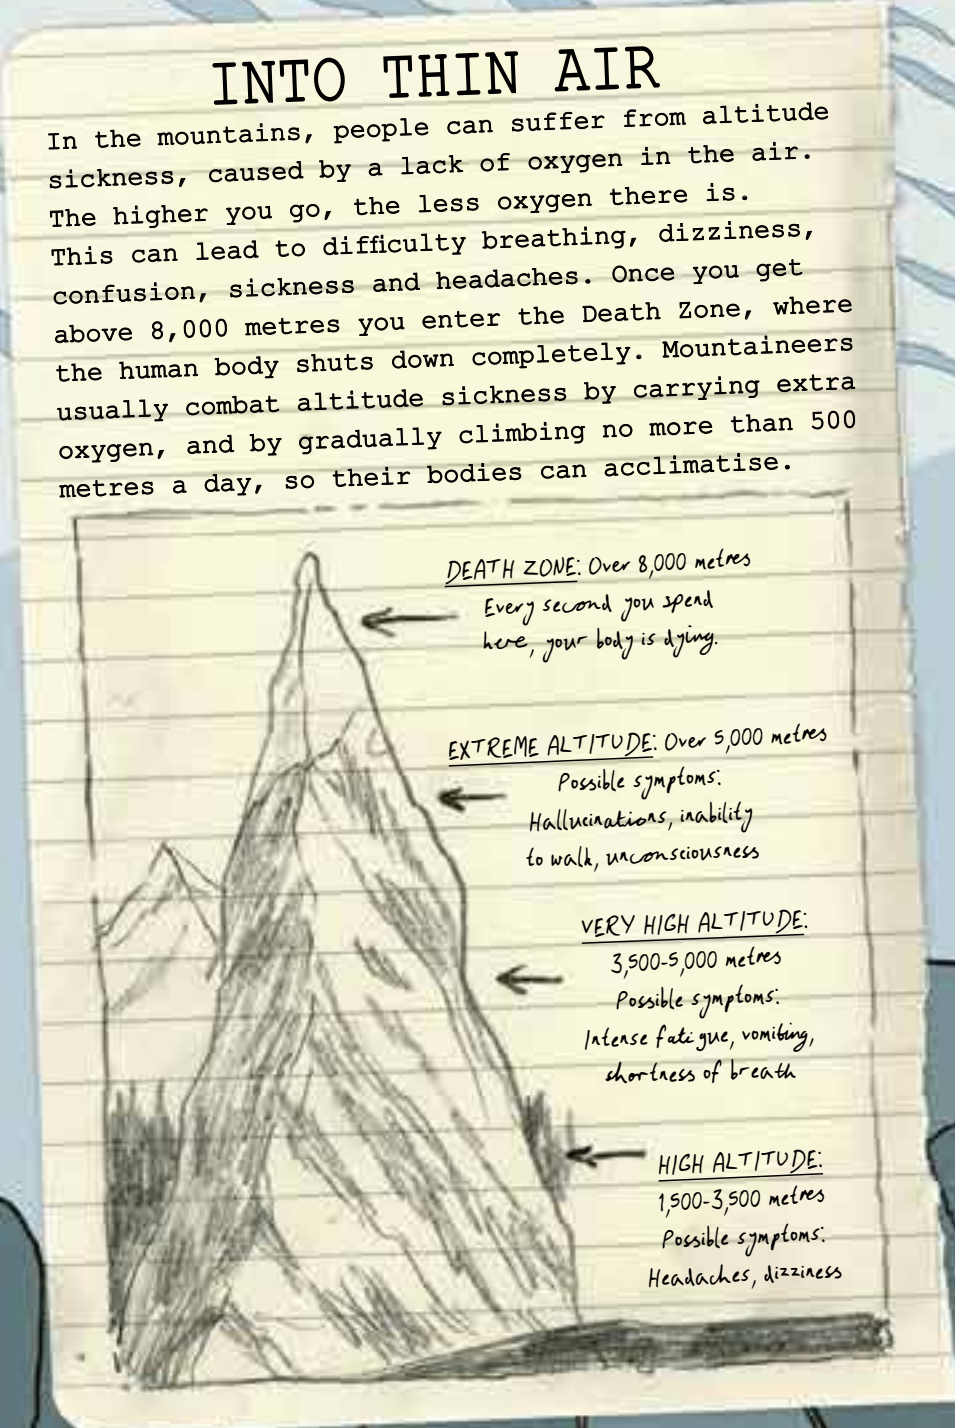 INTO THIN AIR
In the mountains, people can suffer from altitude
sickness, caused by a lack of oxygen in the air.
The higher you go, the less oxygen there is.
This can lead to difficulty breathing, dizziness,
confusion, sickness and headaches. Once you get
above 8,000 metres you enter the Death Zone, where
the human body shuts down completely. Mountaineers
usually combat altitude sickness by carrying extra
oxygen, and by gradually climbing no more than 500
metres a day, so their bodies can acclimatise.
DEATH ZONE: Over 8,000 metres
Every second you spend
here, your body is dying.
EXTREME ALTITUDE: Over 5,000 metres
Possible symptoms:
Hallucinations, inability
to walk, unconsciousness
VERY HIGH ALTITUDE:
3,500-5,000 metres
Possible symptoms:
Intense fatigue, vomiting,
shortness of breath
HIGH ALTITUDE:
1,500-3,500 metres
Possible symptoms:
Headaches, dizziness